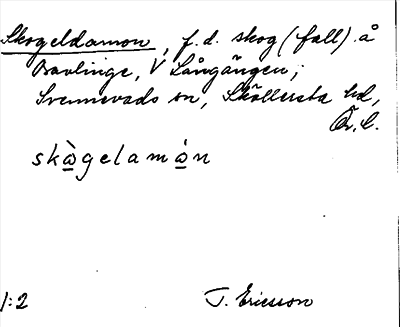 Skogeldamon, f.d. skog (fall) å
Bavlinge, V Långängen;
Svennevads sn, Sköllersta hd,
Ör. l.
skògelamòn
1:2 T. Ericsson